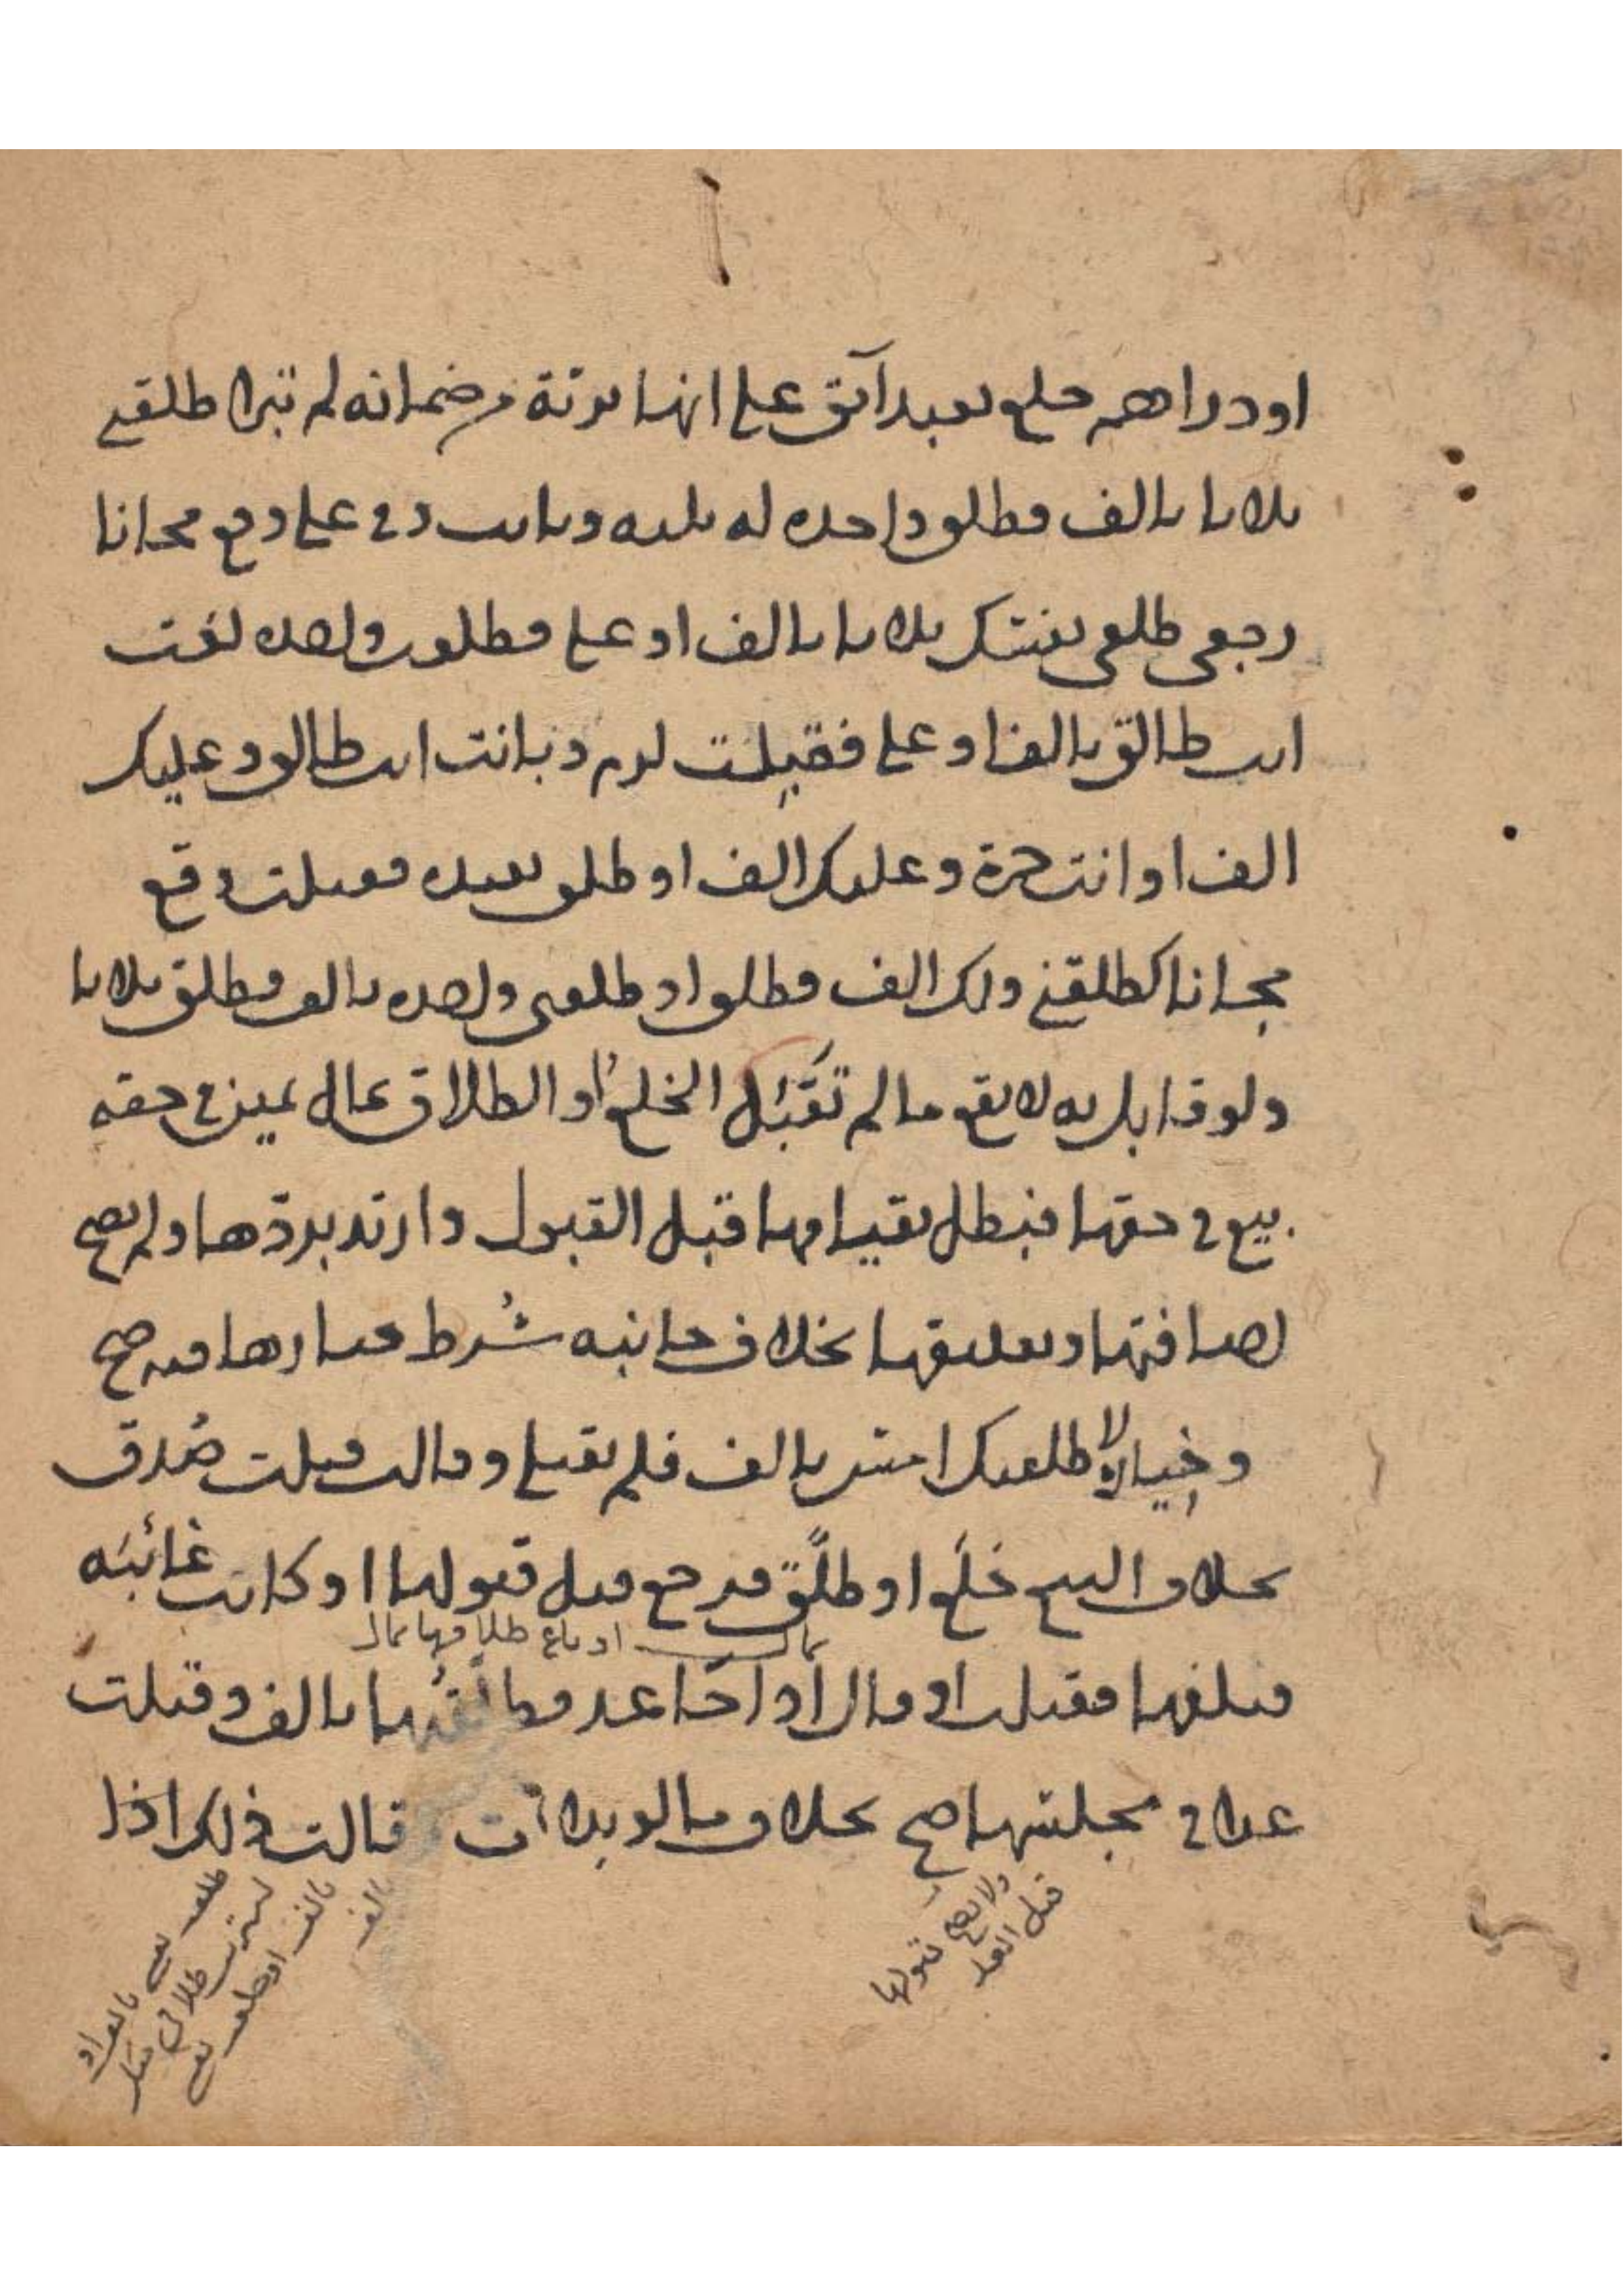 او دراهم خلع بعبد آبق على انها برئة من ضمانه لم تبرا طلقني
ثلاثا بالف فطلق واحدة له ثلثه وبانت وفي على وقع مجانا
رجعي طلقي نفسك ثلاثا بالف او على فطلقت واحدة لغت
انت طالق بالف او على فقبلت لزم وبانت انت طالق وعليك
الف او انت حرة وعليك الف او طلق بعبده فقبلت وقع
مجانا كطلقني ولك الف فطلق او طلقني واحدة بالف فطلق ثلاثا
ولو قابل به لا يقع ما لم تقبل الخلع او الطلاق بمال يمين في حقه
بيع في حقها فبطل بقيامها قبل القبول وارتد بردها ولم يصح
اضافتها وتعليقها بخلاف جانبه شرط خيارها فيه صح
وخياره لا طلقتك امس بالف فلم تقبلي وقالت قبلت صدق
بخلاف البيع خلع او طلق فرجع قبل قبولها او كانت غائبة
بمال او باع طلاقها بمال
فبلغها فقبلت او قال اذا جا غد فطالقتها بالف وقبلت
غدا في مجلسها صح بخلاف ما لو بدات قالت ذلك اذا
ولا يصح قبولها
قبل الغد
طلقـ نفسي بالف او
اشتريت طلاقي منك
بالف او طلقـ نفسي
بالف